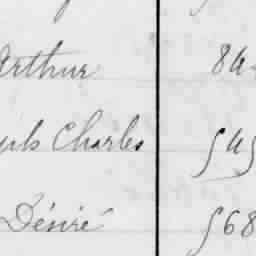 Arthur 84
Charles 545
Désiré 568